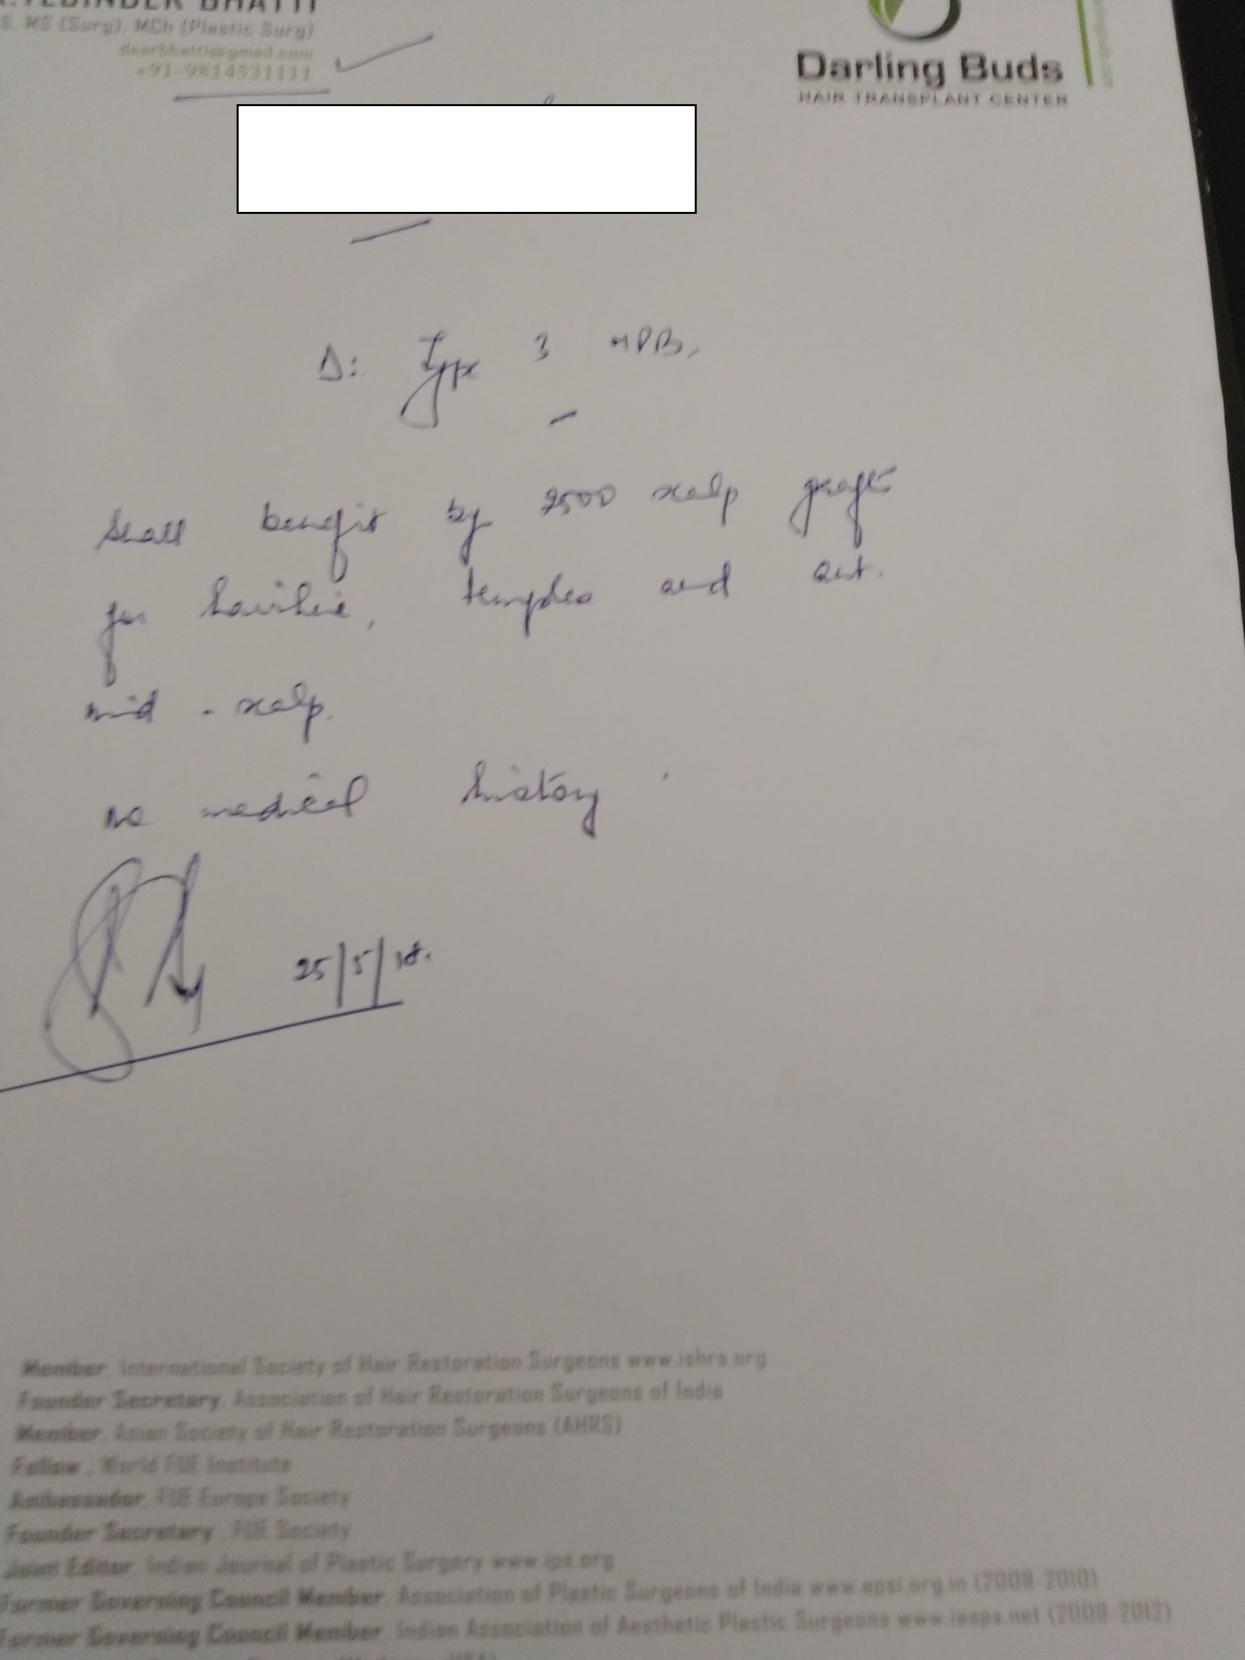 BHATTI
MS (Surg), MCh (Plastic Surg)
+91-9814531111
Darling Buds
HAIR TRANSPLANT CENTER
Δ: Type 3 MPB,
Shall benefit by 2500 scalp grafts
for hairline, temples and ant.
mid - scalp.
No medical history
25/5/18.
Member, International Society of Hair Restoration Surgeons www.ishrs.org
Founder Secretary, Association of Hair Restoration Surgeons of India
Member, Asian Society of Hair Restoration Surgeons (AHRS)
Fellow, World FUE Institute
Ambassador, FUE Europe Society
Founder Secretary, FUE Society
Joint Editor, Indian Journal of Plastic Surgery www.ijps.org
Former Governing Council Member, Association of Plastic Surgeons of India www.apsi.org.in (2008-2010)
Former Governing Council Member, Indian Association of Aesthetic Plastic Surgeons www.iaaps.net (2008-2012)